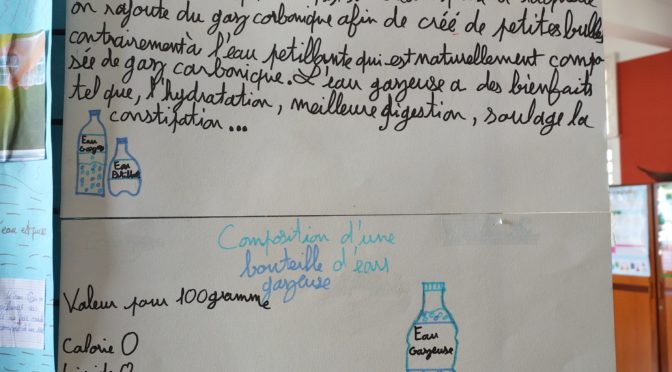 on rajoute du gaz carbonique afin de créé de petites bulles
contrairement à l'eau petillante qui est naturellement compo
sée de gaz carbonique. L'eau gazeuse a des bienfaits
tel que, l'hydratation, meilleure digestion, soulage la
constipation...
Eau
Gazeuse
Eau
Composition d'une
bouteille d'eau
gazeuse
Valeur pour 100gramme
Calorie 0
Eau
Gazeuse